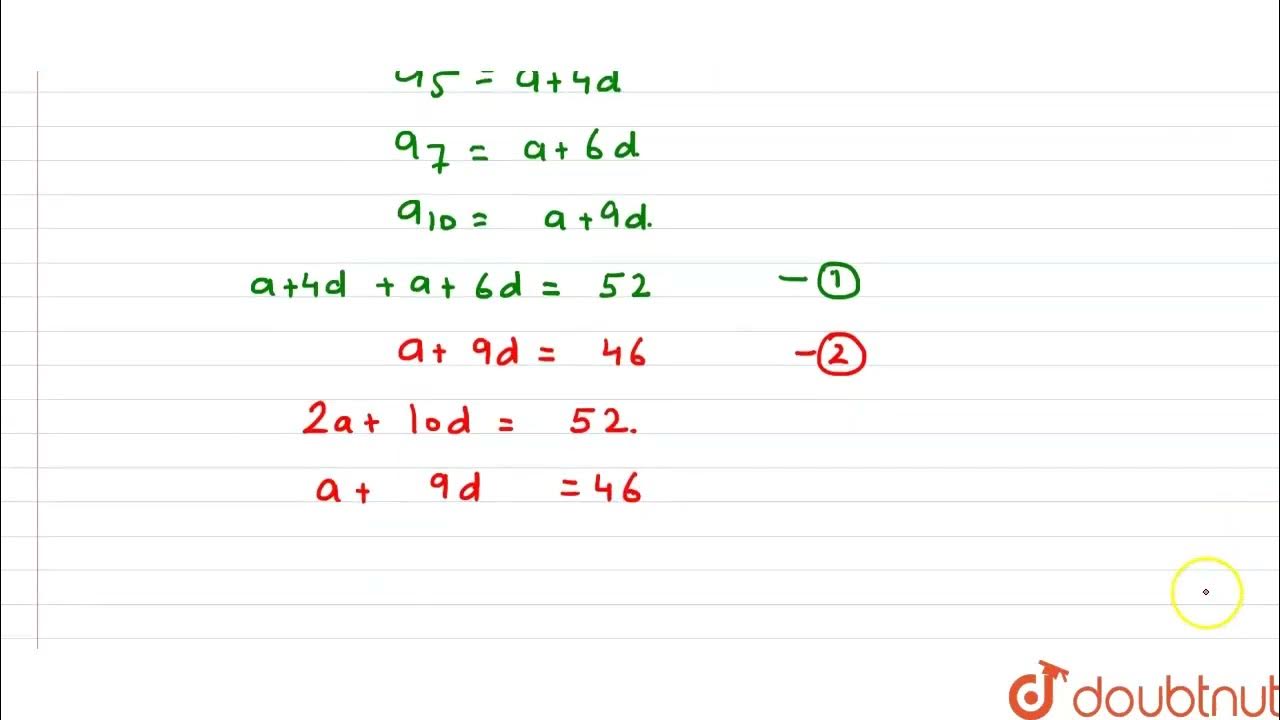 a5 = a+4d
a7 = a+6d
a10 = a+9d.
a+4d + a+6d = 52 - 1
a+ 9d = 46 - 2
2a+ 10d = 52.
a+ 9d = 46
doubtnut